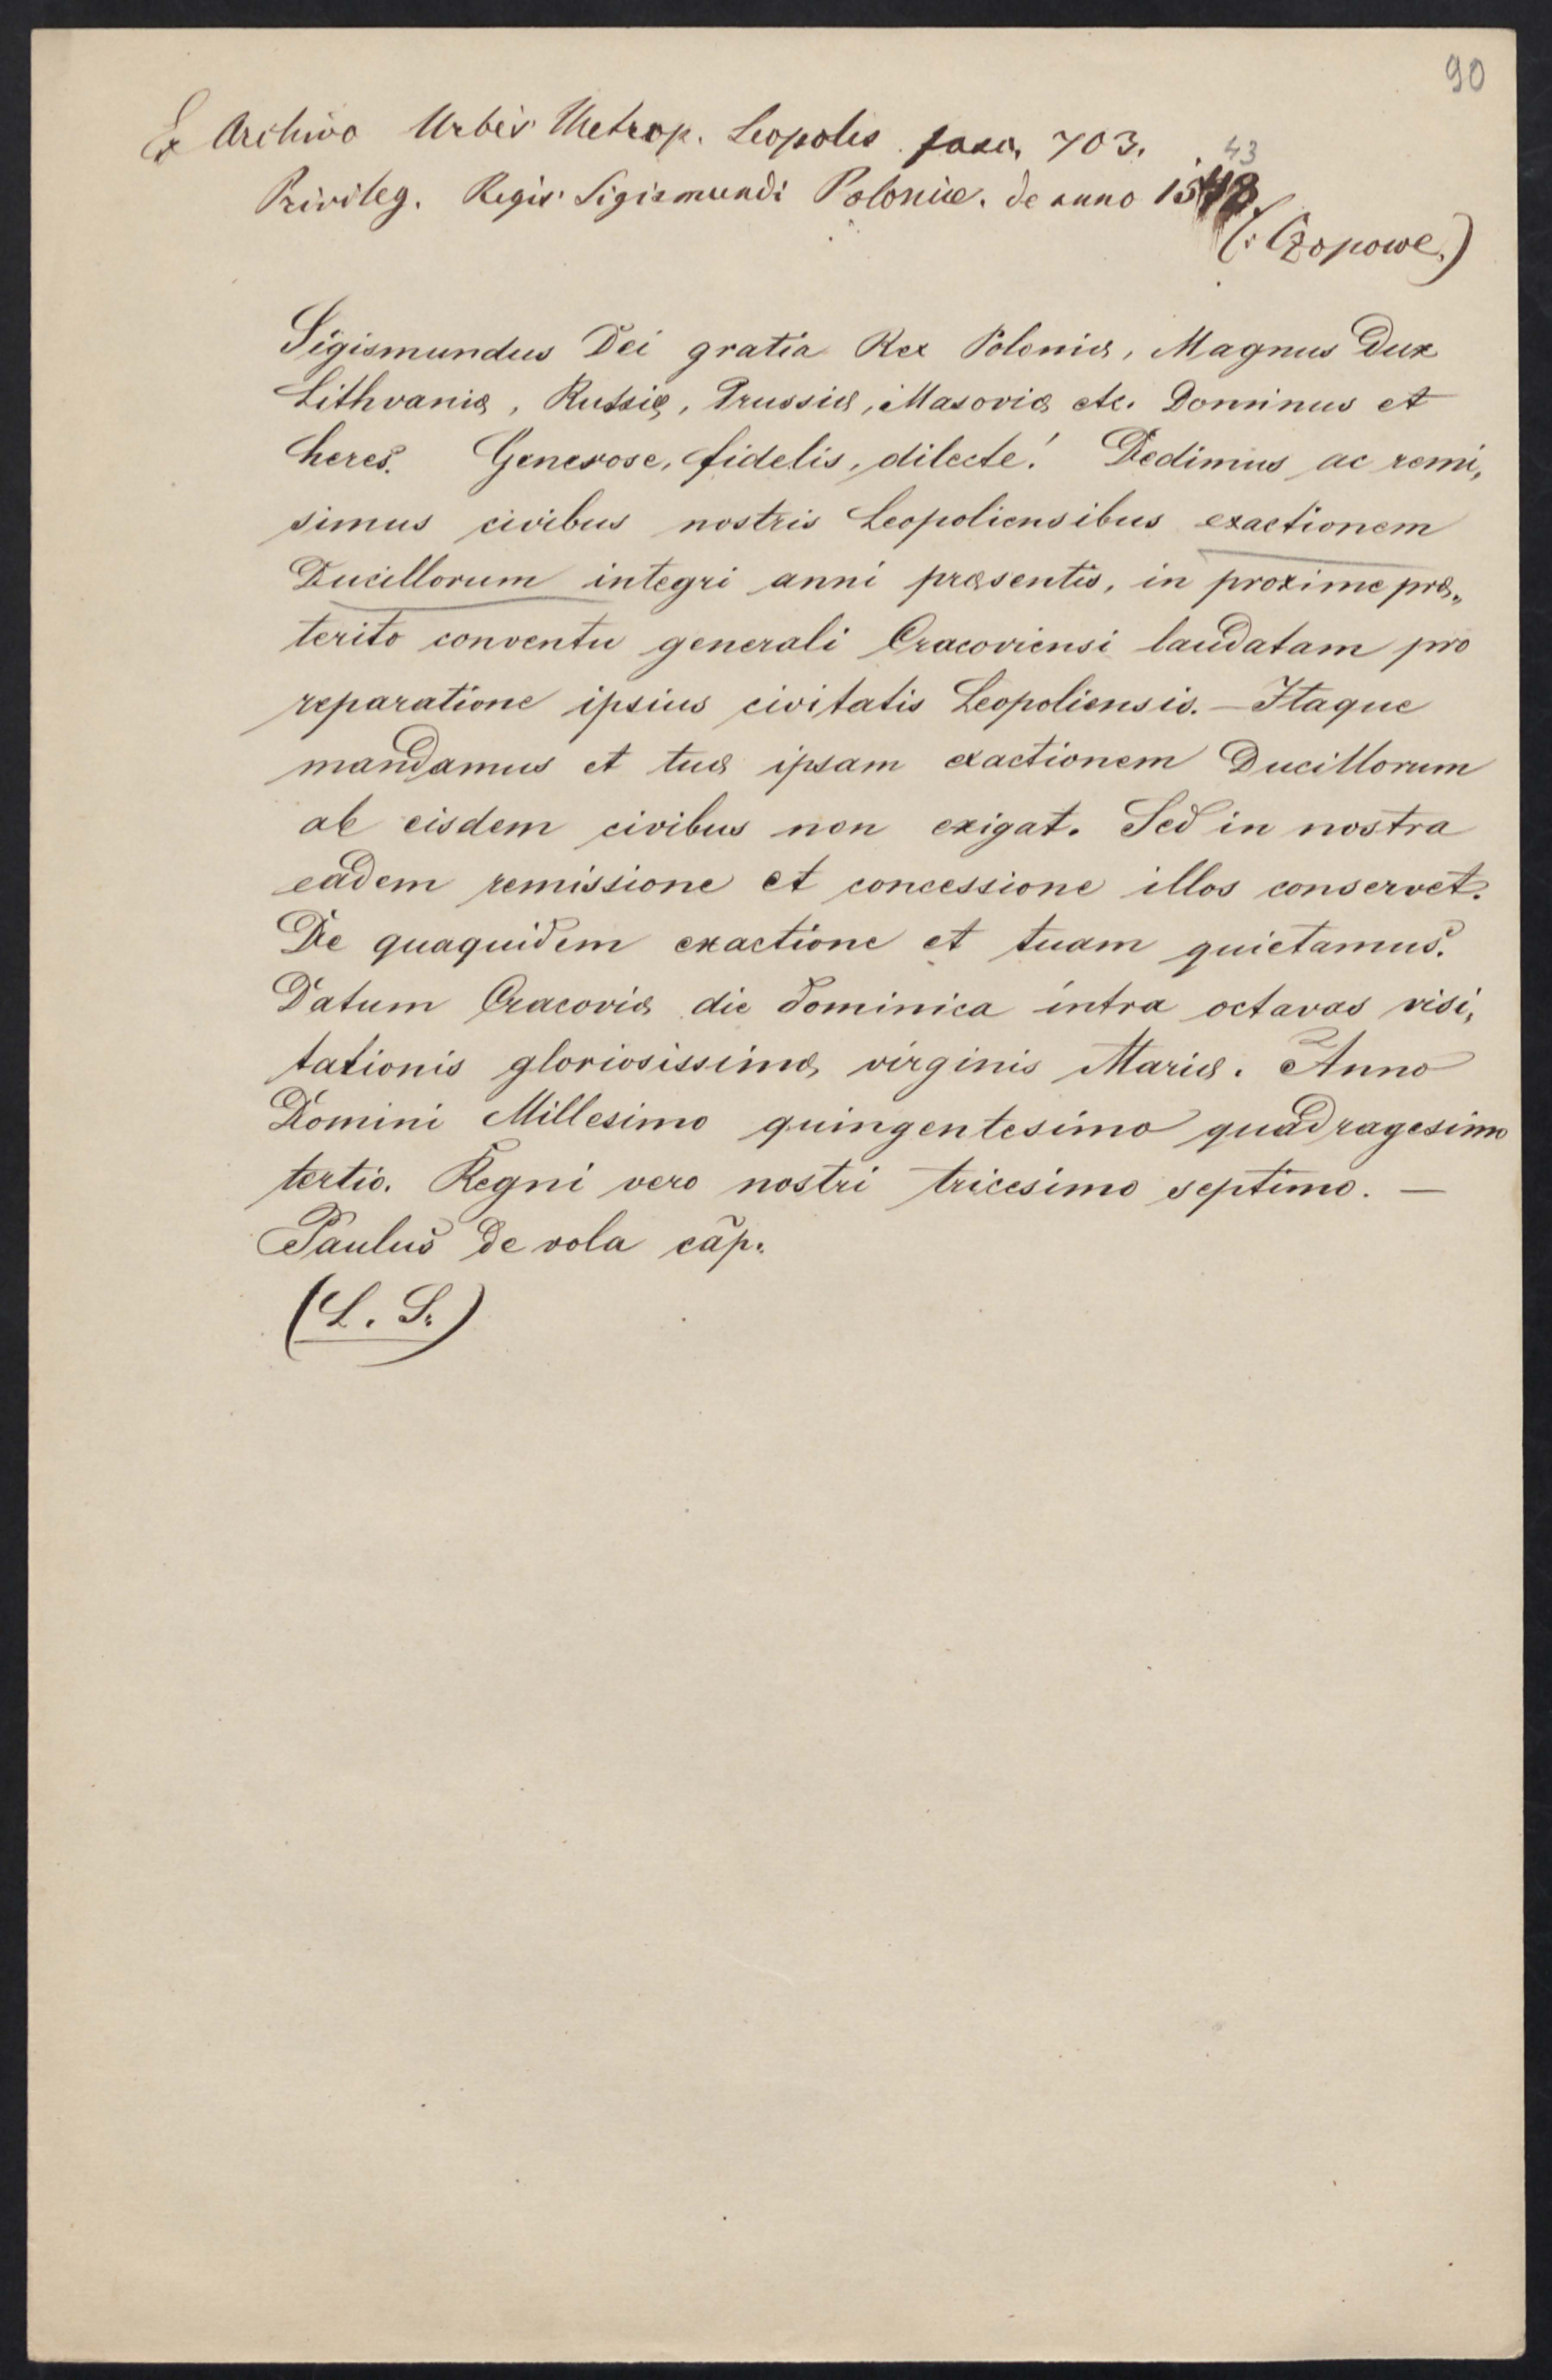 90
Ex Archivo Urbis Metrop. Leopolis fasc. 703.
43
Privileg. Regis Sigismundi Poloniæ. de anno 1548
(: Czopowe.)
Sigismundus Dei gratia Rex Poloniæ, Magnus Dux
Lithvaniæ, Russiæ, Prussiæ, Masoviæ etc. Dominus et
heres. Generose, fidelis, dilecte! Dedimus ac remi„
simus civibus nostris Leopoliensibus exactionem
Ducillorum integri anni præsentis, in proxime præ„
terito conventu generali Cracoviensi laudatam pro
reparatione ipsius civitatis Leopoliensis. — Itaque
mandamus et tuæ ipsam exactionem Ducillorum
ab eisdem civibus non exigat. Sed in nostra
eadem remissione et concessione illos conservet.
De quaquidem exactione et tuam quietamus.
Datum Cracoviæ die dominica intra octavas visi„
tationis gloriosissimæ virginis Mariæ. Anno
Domini Millesimo quingentesimo quadragesimo
tertio. Regni vero nostri tricesimo septimo. —
Paulus de vola cãp.
(L. S.)